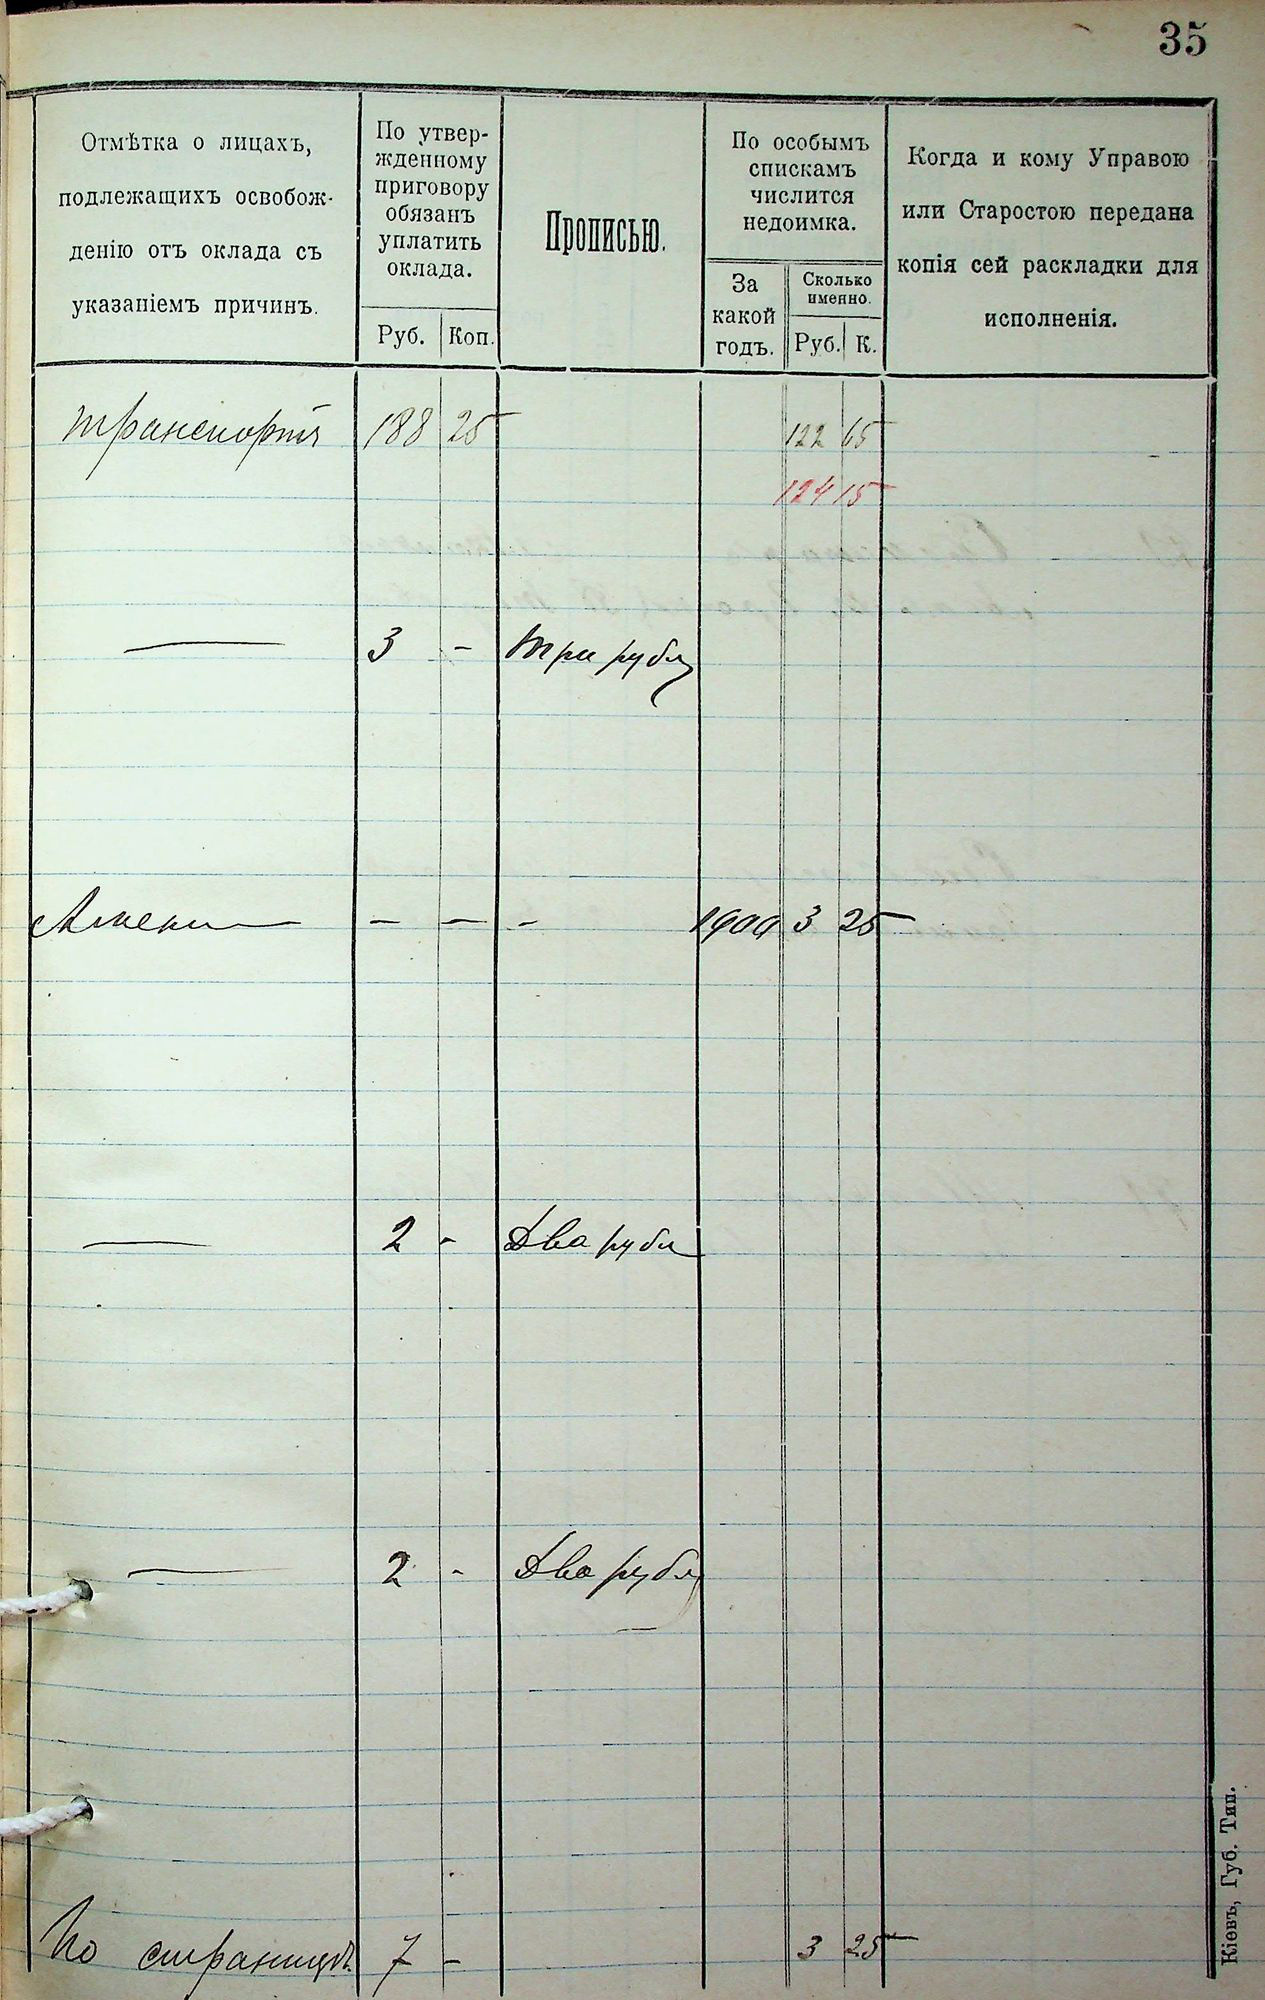 35
Отмѣтка о лицахъ,
подлежащихъ освобож-
денію отъ оклада съ
указаніемъ причинъ.
По утвер-
жденному
приговору
обязанъ
уплатить
оклада.
Руб. Коп.
Прописью.
По особымъ
спискамъ
числится
недоимка.
За
какой
годъ.
Сколько
именно.
Руб. К.
Когда и кому Управою
или Старостою передана
копія сей раскладки для
исполненія.
транспортъ 188 25 122 65
124 15
— 3 - три рубл
— - - 1900 3 25
— 2 - Два рубл
— 2 - Два рубл
По страницѣ 7 - 3 25
Кіевъ, Губ. Тип.